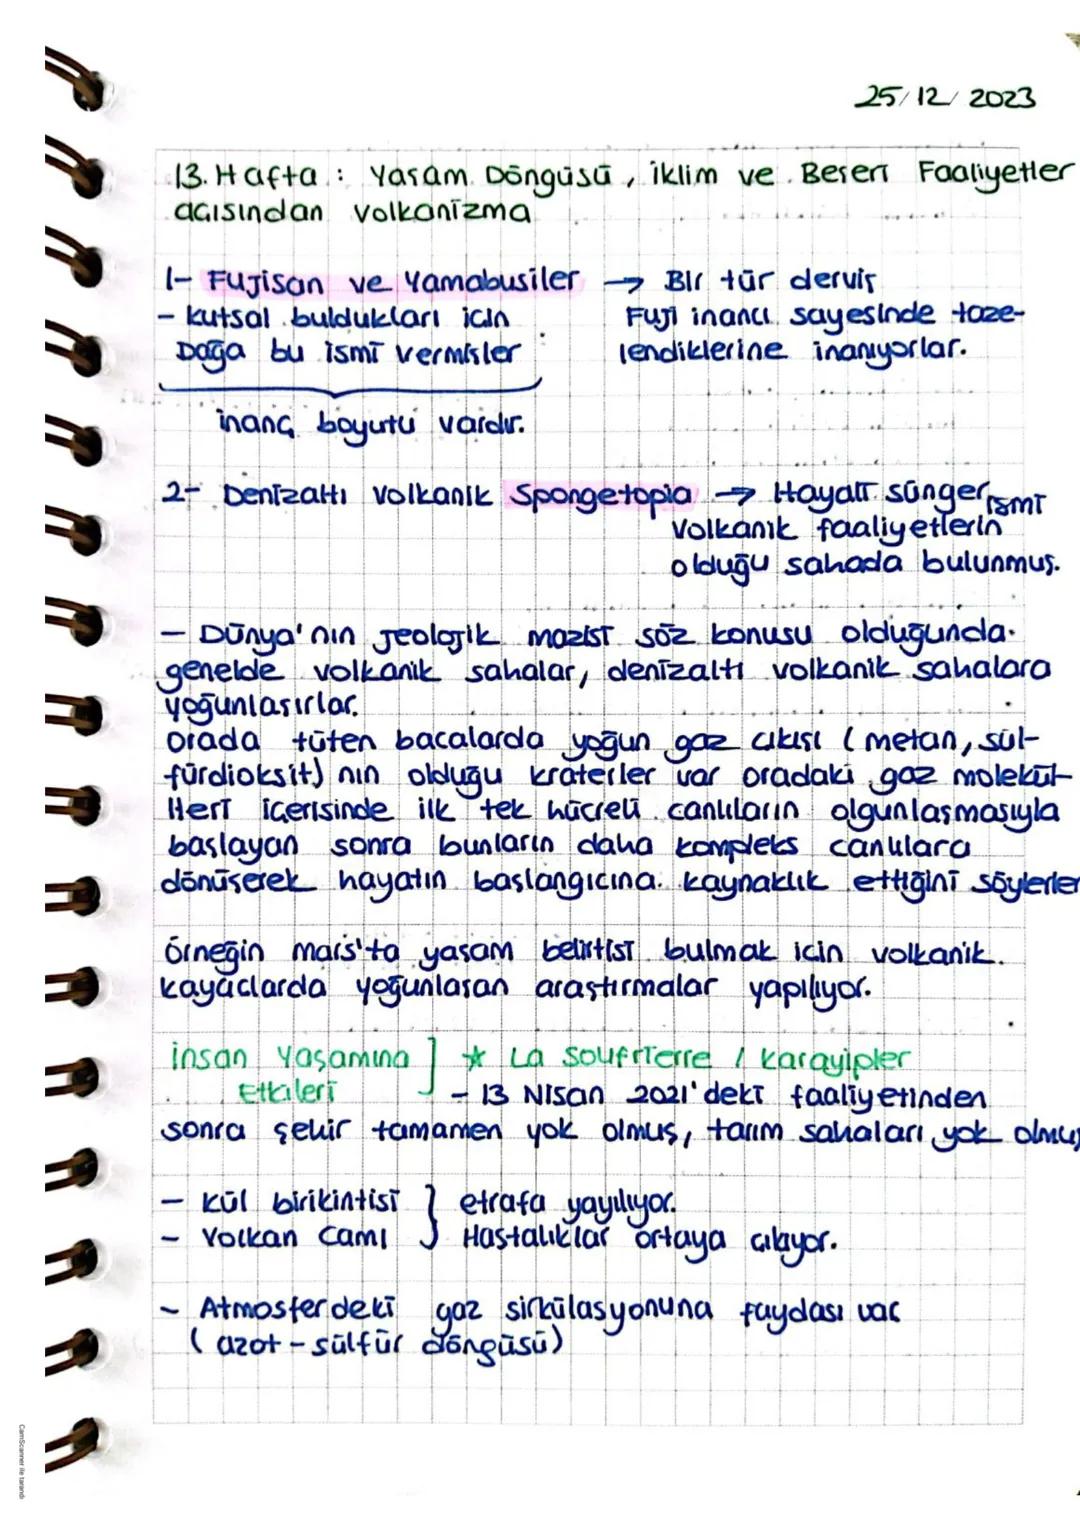 25/12/2023
13. Hafta : Yaşam Döngüsü, iklim ve Beşeri Faaliyetler
açısından volkanizma
1- Fujisan ve Yamabusiler → Bir tür derviş
- kutsal buldukları için
Fuji inancı sayesinde taze-
Dağa bu ismi vermişler
lendiklerine inanıyorlar.
inanç boyutu vardır.
2- Denizaltı volkanik Spongetopia → Hayali sünger ismi
Volkanik faaliyetlerin
olduğu sahada bulunmuş.
- Dünya'nın jeolojik mazisi söz konusu olduğunda
genelde volkanik sahalar, denizaltı volkanik sahalara
yoğunlaşırlar.
Orada tüten bacalarda yoğun gaz çıkışı (metan, sül-
fürdioksit) nin olduğu kraterler var oradaki gaz molekül-
lleri içerisinde ilk tek hücreli canlıların olgunlaşmasıyla
başlayan sonra bunların daha kompleks canlılara
dönüşerek hayatın başlangıcına kaynaklık ettiğini söylerler
Örneğin mars'ta yaşam belirtisi bulmak için volkanik
kayaçlarda yoğunlaşan araştırmalar yapılıyor.
insan Yaşamına ] ★ La soufrierre / karayipler
Etkileri
- 13 Nisan 2021'deki faaliyetinden
sonra şehir tamamen yok olmuş, tarım sahaları yok olmuş
- kül birikintisi } etrafa yayılıyor.
- Volkan Camı } Hastalıklar ortaya çıkıyor.
- Atmosferdeki gaz sirkülasyonuna faydası var
(azot-sülfür döngüsü)
CamScanner ile tarandı